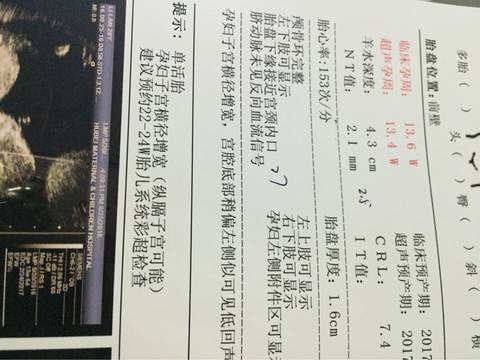 多胎（ ）头（ ）臀（ ）斜（ ）横
胎盘位置：前壁
临床孕周：13.6 W 临床预产期：2017
超声孕周：13.4 W 超声预产期：2017
羊水深度：4.3 cm CRL：7.4
NT值：2.1 mm IT值：
胎心率：153次/分 胎盘厚度：1.6cm
颅骨环完整 左上肢可显示
左下肢可显示 右下肢可显示
胎盘下缘接近宫颈内口 孕妇左侧附件区可显示
脐动脉未见反向血流信号
孕妇子宫横径增宽，宫腔底部稍偏左侧似可见低回声
提示：单活胎
孕妇子宫横径增宽（纵膈子宫可能）
建议预约22-24W胎儿系统彩超检查
LMP 5/20/
4:09:31 PM 8/25/2016
HUBEI MATERNAL & CHILDREN HOSPITAL
SIEMENS